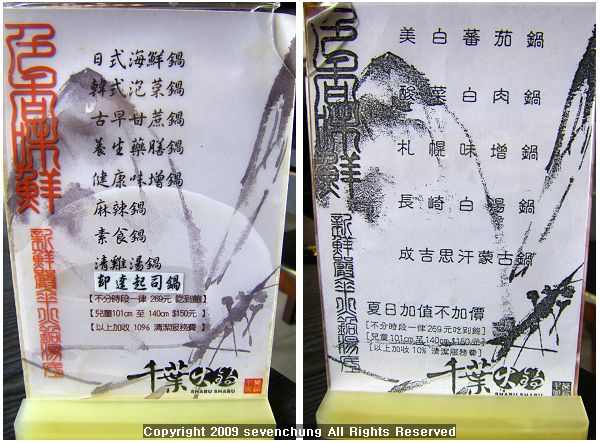 色香味鮮
日式海鮮鍋
韓式泡菜鍋
古早甘蔗鍋
養生藥膳鍋
健康味增鍋
麻辣鍋
素食鍋
清雞湯鍋
卸達起司鍋
【不分時段一律 269元 吃到飽】
【兒童101cm 至 140cm $150元】
【以上加收 10% 清潔服務費】
千葉火鍋
SHABU SHABU
色香味鮮
美白蕃茄鍋
酸菜白肉鍋
札幌味增鍋
長崎白湯鍋
成吉思汗蒙古鍋
夏日加值不加價
【不分時段一律269元吃到飽】
【兒童101cm 至 140cm $150元】
【以上加收 10% 清潔服務費】
千葉火鍋
SHABU SHABU
Copyright 2009 sevenchung All Rights Reserved